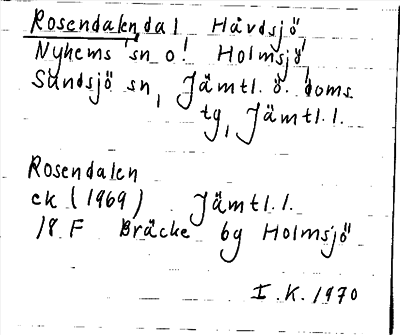 Rosendalen, dal Håvdsjö,
Nyhems sn o. Holmsjö,
Sundsjö sn, Jämtl. ö. doms.
tg, Jämtl. l.
Rosendalen
ek (1969) Jämtl. l.
18 F Bräcke bg Holmsjö
I. K. 1970